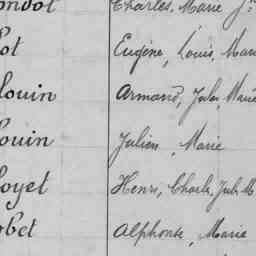 ondot Charles, Marie J
ot Eugène, Louis, Mari
louin Armand, Jules, Marie
ouin Julien, Marie
oyet Henri, Charle, Jule M
obet Alphonse, Marie